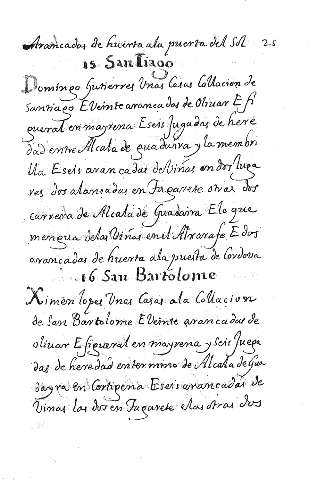 Arancadas de huerta ala puerta del Sol 25
15 Santiago
Domingo Gutierres Unas Casas Collacion de
Santiago E Veinte arancadas de Oliuar E fi
gueral en mayrena E seis Jugadas de here
dad entre Alcala de guadaira y la membri
lla E seis arancadas de Viñas en dos luga
res dos alansadas en Tagarete otras dos
carrera de Alcala de Guadaira E lo que
mengua delas Viñas en el Alxarafe E dos
arancadas de huerta ala puerta de Cordova
16 San Bartolome
Ximen lopes Unas Casas ala Collacion
de San Bartolome E Veinte arancadas de
oliuar E figueral en mayrena y Seis Juga
das de heredad en termino de Alcala de Gua
dayra en Cortipena E seis arancadas de
Vinas las dos en Tagarete elas otras dos